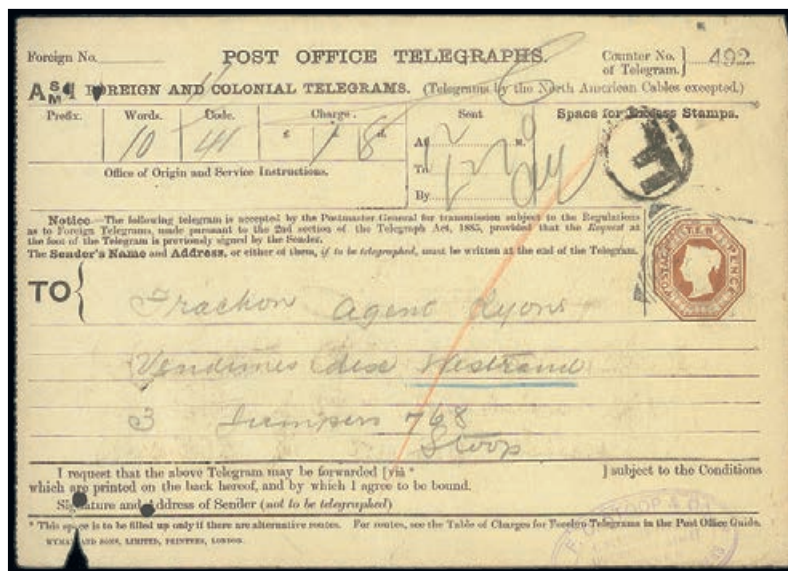 Foreign No.
POST OFFICE TELEGRAPHS.
Counter No. of Telegram. } 492
A S M FOREIGN AND COLONIAL TELEGRAMS. (Telegrams by the North American Cables excepted.)
Prefix. Words. Code. Charge. Sent Space for Excess Stamps.
10 41 £ 1 s. 8 d.
At M.
To
By
Office of Origin and Service Instructions.
F
Notice.—The following telegram is accepted by the Postmaster General for transmission subject to the Regulations
as to Foreign Telegrams, made pursuant to the 2nd section of the Telegraph Act, 1885, provided that the Request at
the foot of the Telegram is previously signed by the Sender.
The Sender's Name and Address, or either of them, if to be telegraphed, must be written at the end of the Telegram.
POSTAGE TEN PENCE
TO { Trachon Agent Lyons
Vendimes dix Hestrand
3 768
Stoop
I request that the above Telegram may be forwarded [viâ * ] subject to the Conditions
which are printed on the back hereof, and by which I agree to be bound.
Signature and Address of Sender (not to be telegraphed)
F. C. STOOP & CO
* This space is to be filled up only if there are alternative routes. For routes, see the Table of Charges for Foreign Telegrams in the Post Office Guide.
WYMAN AND SONS, LIMITED, PRINTERS, LONDON.